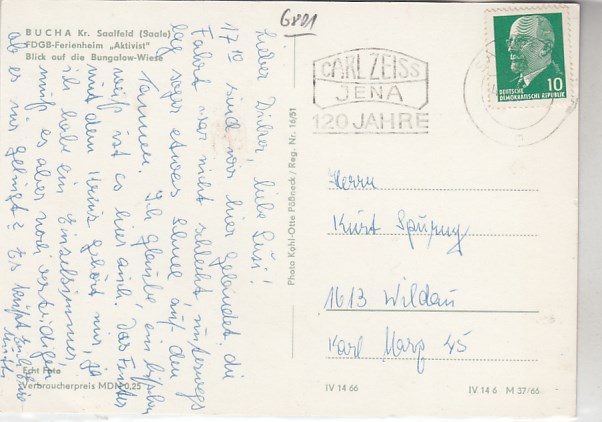 BUCHA Kr. Saalfeld (Saale)
FDGB-Ferienheim „Aktivist"
Blick auf die Bungalow-Wiese
6821
CARL ZEISS
JENA
120 JAHRE
DEUTSCHE
DEMOKRATISCHE REPUBLIK
10
Lieber Diher, liebe Susi!
17¹⁰ sind wir hier gelandet, die
Fahrt war nicht schlecht, unterwegs
lag sogar etwas Schnee auf den
Tannen. Ich glaube, ein bißchen
weiß ist es hier auch. Das Fenster
mit dem Kreuz gehört mir, ja
ich habe ein Einzelzimmer,
muß es aber noch verteidigen
ob es mir gelingt? Es
Photo Kahl-Otte Pößneck / Reg. Nr. 16/51
Herrn
Kurt Spurny
1613 Wildau
Karl Marx 45
Echt Foto
Verbraucherpreis MDN 0,25
IV 14 66
IV 14 6 M 37/65